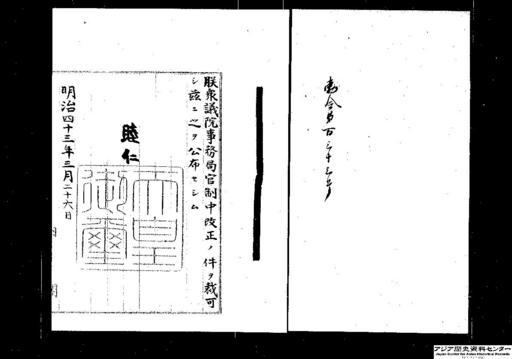 勅令第百三十三号
朕衆議院事務局官制中改正ノ件ヲ裁可
シ茲ニ之ヲ公布セシム
睦仁
天皇御璽
明治四十三年三月二十六日
内閣
アジア歴史資料センター
Japan Center for Asian Historical Records